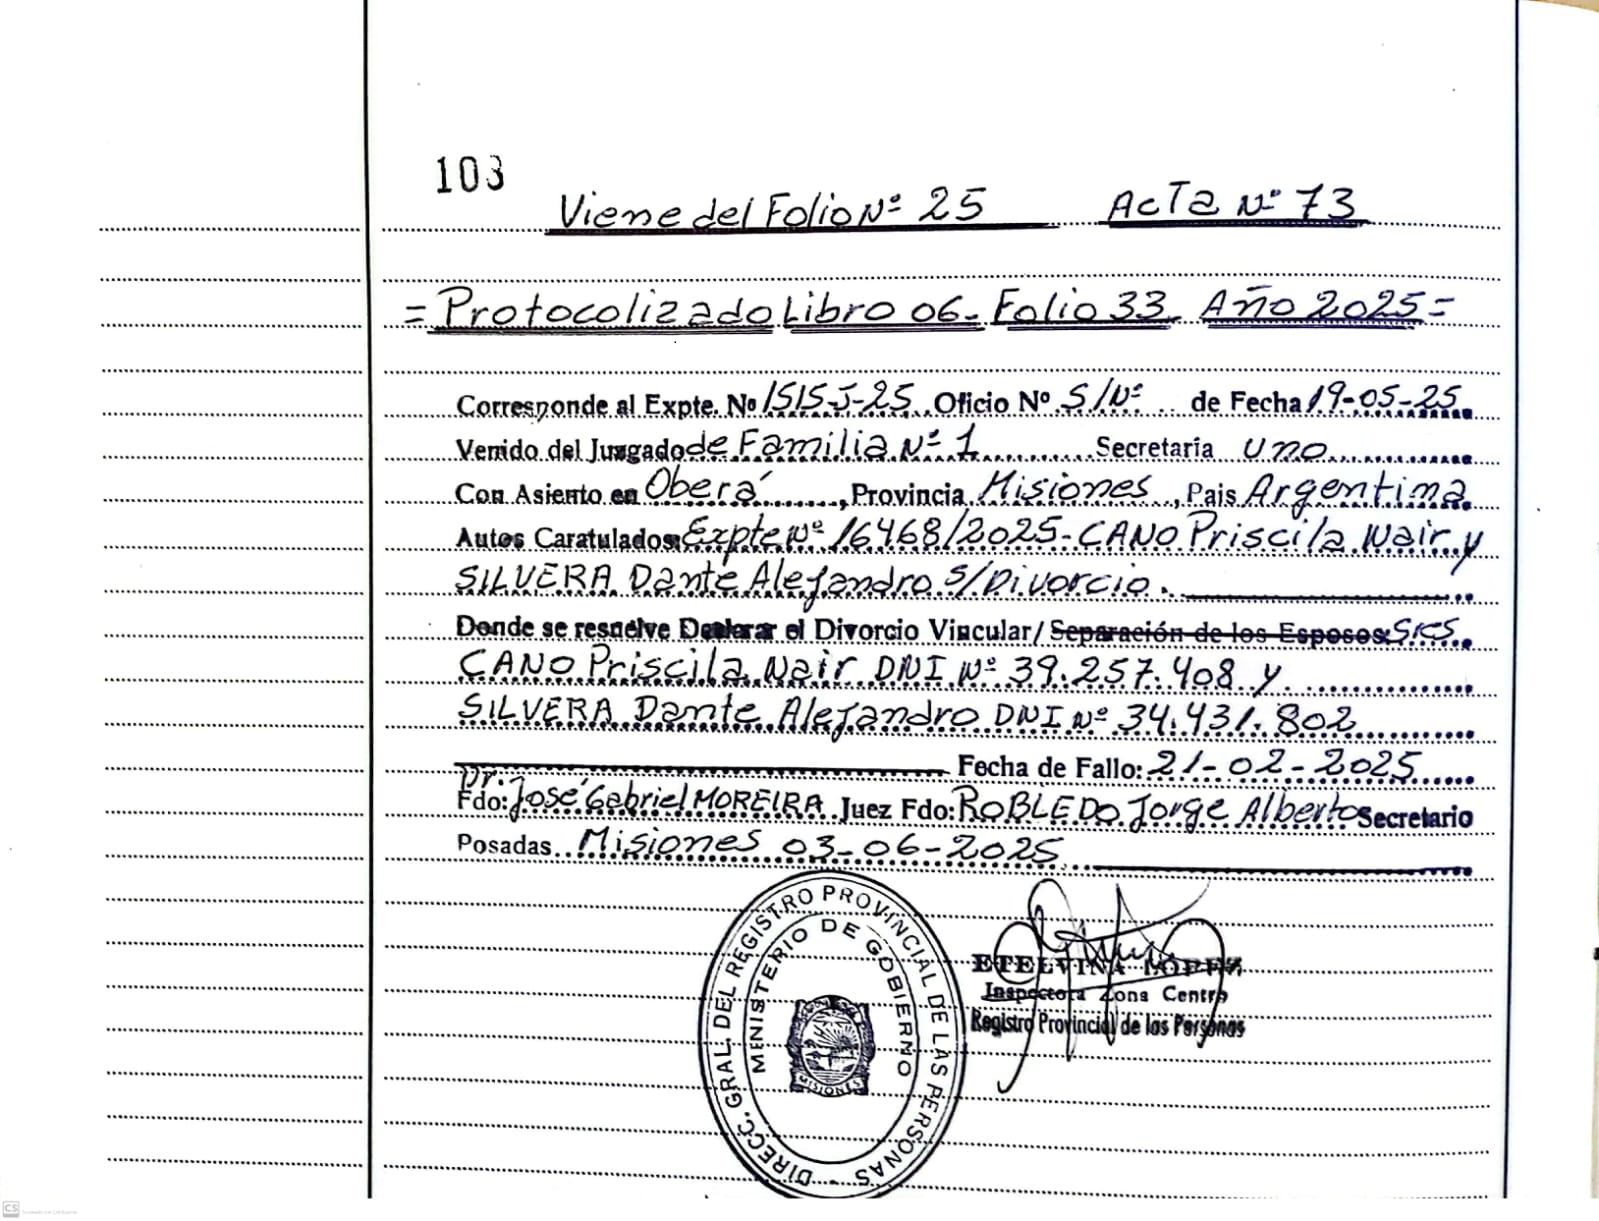 103
Viene del Folio Nº 25 Acta Nº 73
= Protocolizado Libro 06- Folio 33- Año 2025 =
Corresponde al Expte. Nº 1515-J-25 Oficio Nº S/Nº de Fecha 19-05-25
Venido del Juzgado de Familia Nº 1 Secretaría uno
Con Asiento en Oberá, Provincia Misiones, Pais Argentina
Autos Caratulados: Expte Nº 16468/2025- CANO Priscila Nair y
SILVERA Dante Alejandro s/Divorcio.
Donde se resuelve Declarar el Divorcio Vincular/ Separación de los Esposos: Sres
CANO Priscila Nair DNI Nº 39.257.408 y
SILVERA Dante Alejandro DNI Nº 34.431.802
Fecha de Fallo: 21-02-2025
Fdo: Dr. José Gabriel MOREIRA Juez Fdo: ROBLEDO Jorge Alberto Secretario
Posadas Misiones 03-06-2025
DIRECC. GRAL. DEL REGISTRO PROVINCIAL DE LAS PERSONAS -
MINISTERIO DE GOBIERNO
MISIONES
ETELVINA LOPEZ
Inspectora Zona Centro
Registro Provincial de las Personas
CS